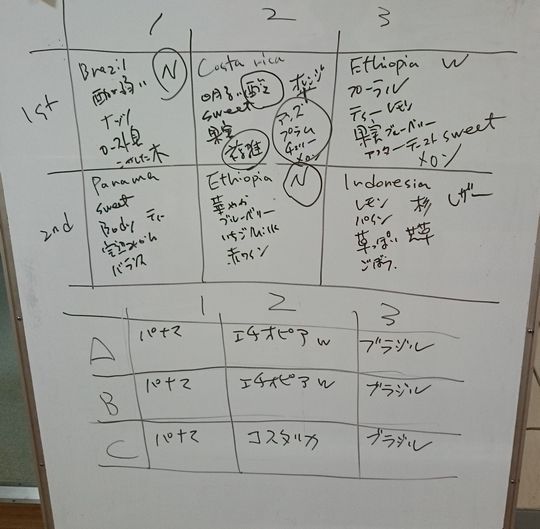 1 2 3
1st
Brazil
N
酸が弱い
ナッツ
ロースト臭
こげた木
Costa rica
明るい酸 オレンジ
sweet
果実
複雑
アンズ
プラム
チェリー
メロン
Ethiopia W
フローラル
ティー レモン
果実 ブルーベリー
アフターテースト sweet
メロン
2nd
Panama
sweet
Body ティー
バランス
Ethiopia
N
華やか
ブルーベリー
いちごMilk
赤ワイン
Indonesia
レモン 杉 レザー
パイン
草っぽい
ごぼう
1 2 3
A パナマ エチオピア W ブラジル
B パナマ エチオピア W ブラジル
C パナマ コスタリカ ブラジル